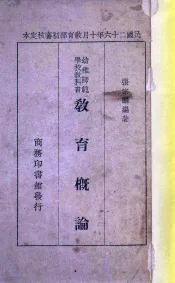 民國二十六年十月教育部初審核定本
張
編著
幼稚師範
學校教科書
教育概論
商務印書館發行